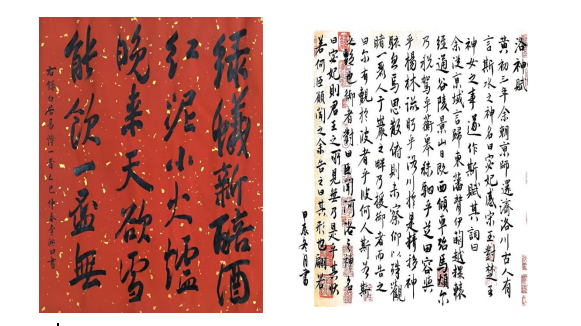 绿蟻新醅酒
红泥小火爐
晚来天欲雪
能飲一盃無
右録白居易詩一首乙巳仲春書
洛神賦
黄初三年余朝京師還濟洛川古人有
言斯水之神名曰宓妃感宋玉對楚王
神女之事遂作斯賦其詞曰
余從京域言歸東藩背伊闕越轘轅
經通谷陵景山日既西傾車殆馬煩尔
乃税駕乎蘅皋秣駟乎芝田容與
乎楊林流眄乎洛川於是精移神
駭忽焉思散俯則未察仰以殊觀
睹一麗人于巖之畔乃援御者而告之
曰尔有覿於彼者乎彼何人斯若斯
之艷也御者對曰臣聞河洛之神名
曰宓妃則君王之所見無乃是乎其狀
若何臣願聞之余告之曰其形也翩若
甲辰月書